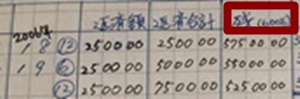 返済額 返済合計
2006年
18 ⑫ 250000 250000 5750000
19 ⑥ 250000 500000 5500000
⑫ 250000 750000 5250000